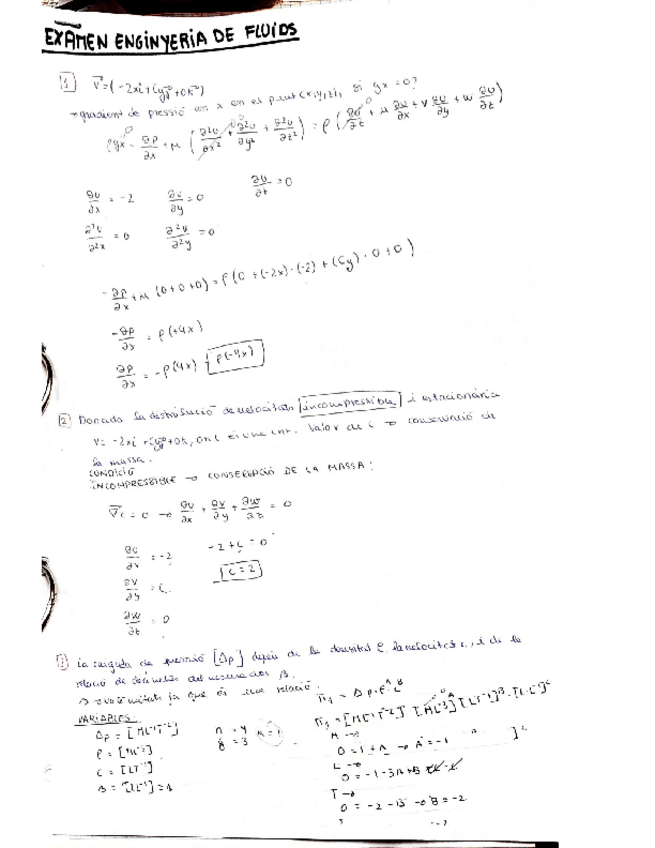 EXAMEN ENGINYERIA DE FLUIDS
1 V⃗=(-2xi+Cyj+0k)
gradient de pressió en x en el punt (x,y,z), si gx=0?
ρgx - ∂p/∂x + μ (∂²u/∂x² + ∂²u/∂y² + ∂²u/∂z²) = ρ (∂u/∂t + u ∂u/∂x + v ∂u/∂y + w ∂u/∂z)
∂u/∂x = -2 ∂u/∂y = 0 ∂u/∂t = 0
∂²u/∂²x = 0 ∂²u/∂²y = 0
-∂p/∂x + μ (0+0+0) = ρ(0+(-2x)·(-2)+(Cy)·0+0)
-∂p/∂x = ρ(+4x)
∂p/∂x = -ρ(4x) ρ(-4x)
2 Donada la distribució de velocitats incompressible i estacionària
V= -2xi+Cyj+0k, on C és una cnt. Valor de C → conservació de
la massa.
CONDICIÓ
INCOMPRESSIBLE → CONSERVACIÓ DE LA MASSA:
= 0 → ∂u/∂x + ∂v/∂y + ∂w/∂z = 0
∂u/∂x = -2 -2+C=0
∂v/∂y = C C=2
∂w/∂z = 0
3 La caiguda de pressió [Δp] depèn de la densitat ρ, la velocitat c, i de la
relació de diàmetres β.
ja que és una relació.
VARIABLES:
Δp = [ML⁻¹T⁻²] n = 4
ρ = [ML⁻³] = 3
c = [LT⁻¹]
B = [LL⁻¹]=1
π₁ = Δp·ρᴬ·
π₁ = [ML⁻¹T⁻²] [ML⁻³]ᴬ [LT⁻¹]ᴮ·[L·L⁻¹]ᶜ
M →
0 = 1+A → A = -1
L →
0 = -1-3A+B
T →
0 = -2-B → B = -2